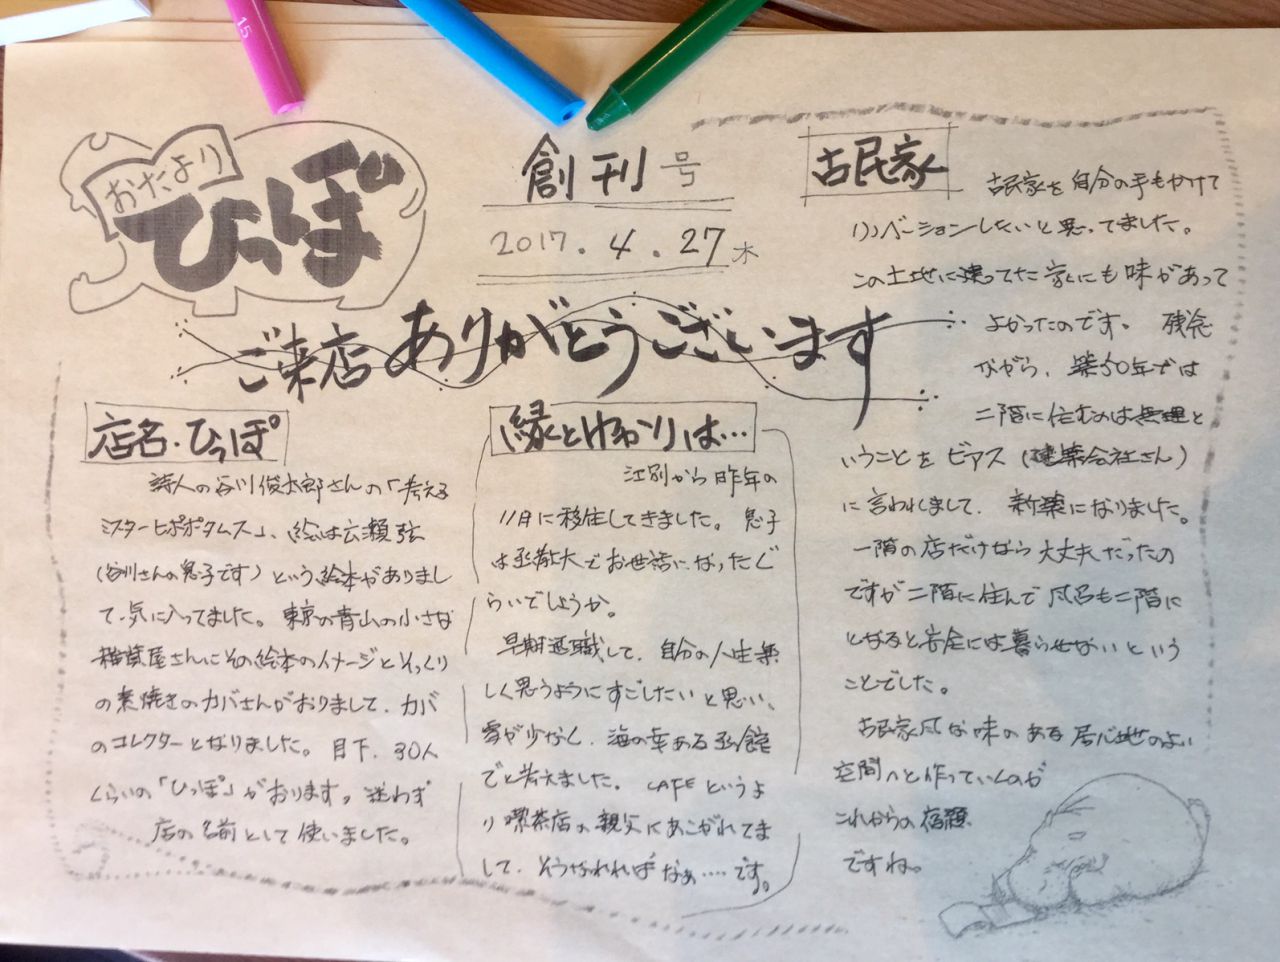 おたより
ひっぽ
創刊号
2017.4.27木
ご来店ありがとうございます
店名・ひっぽ
詩人の谷川俊太郎さんの「考える
ミスターヒポポタムス」、絵は広瀬弦
(谷川さんの息子です)という絵本がありまし
て、気に入ってました。東京の青山の小さな
雑貨屋さんにその絵本のイメージとそっくり
の素焼きのカバさんがおりまして、カバ
のコレクターとなりました。目下、30人
くらいの「ひっぽ」がおります。迷わず
店の名前として使いました。
縁とゆかりは…
江別から昨年の
11月に移住してきました。息子
は函教大でお世話になったぐ
らいでしょうか。
早期退職して、自分の人生楽
しく思うようにすごしたいと思い、
雪が少なく、海の幸ある函館
でと考えました。CAFEというよ
り喫茶店の親父にあこがれてま
して、そうなれればなぁ……です。
古民家
古民家を自分の手もかけて
リノベーションしたいと思ってました。
この土地に建ってた家にも味があって
よかったのです。残念
ながら、築50年では
二階に住むのは無理と
いうことをビアス(建築会社さん)
に言われまして、新築になりました。
一階の店だけなら大丈夫だったの
ですが二階に住んで風呂も二階に
となると安全には暮らせないという
ことでした。
古民家風な味のある居心地のよい
空間へと作っていくのが
これからの宿題
ですね。
15